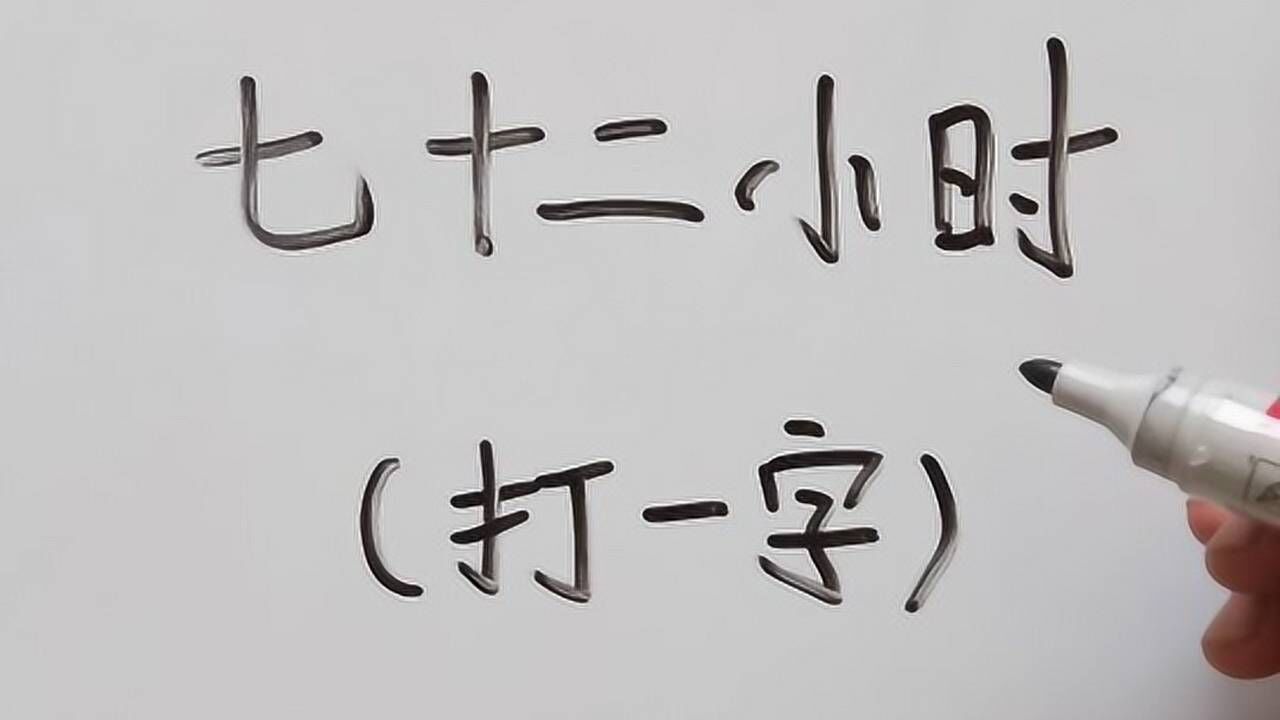 七十二小时
(打一字)